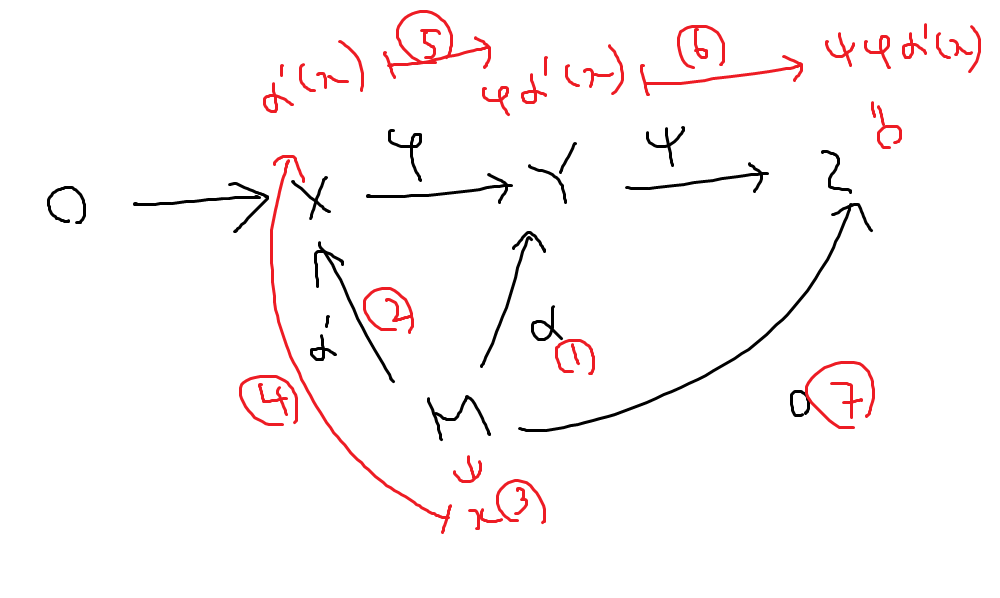 α'(x) ⟼ ⑤ φα'(x) ⟼ ⑥ ψφα'(x)
0 → X φ → Y ψ → Z
α' ② α ①
④ M 0 ⑦
x ③